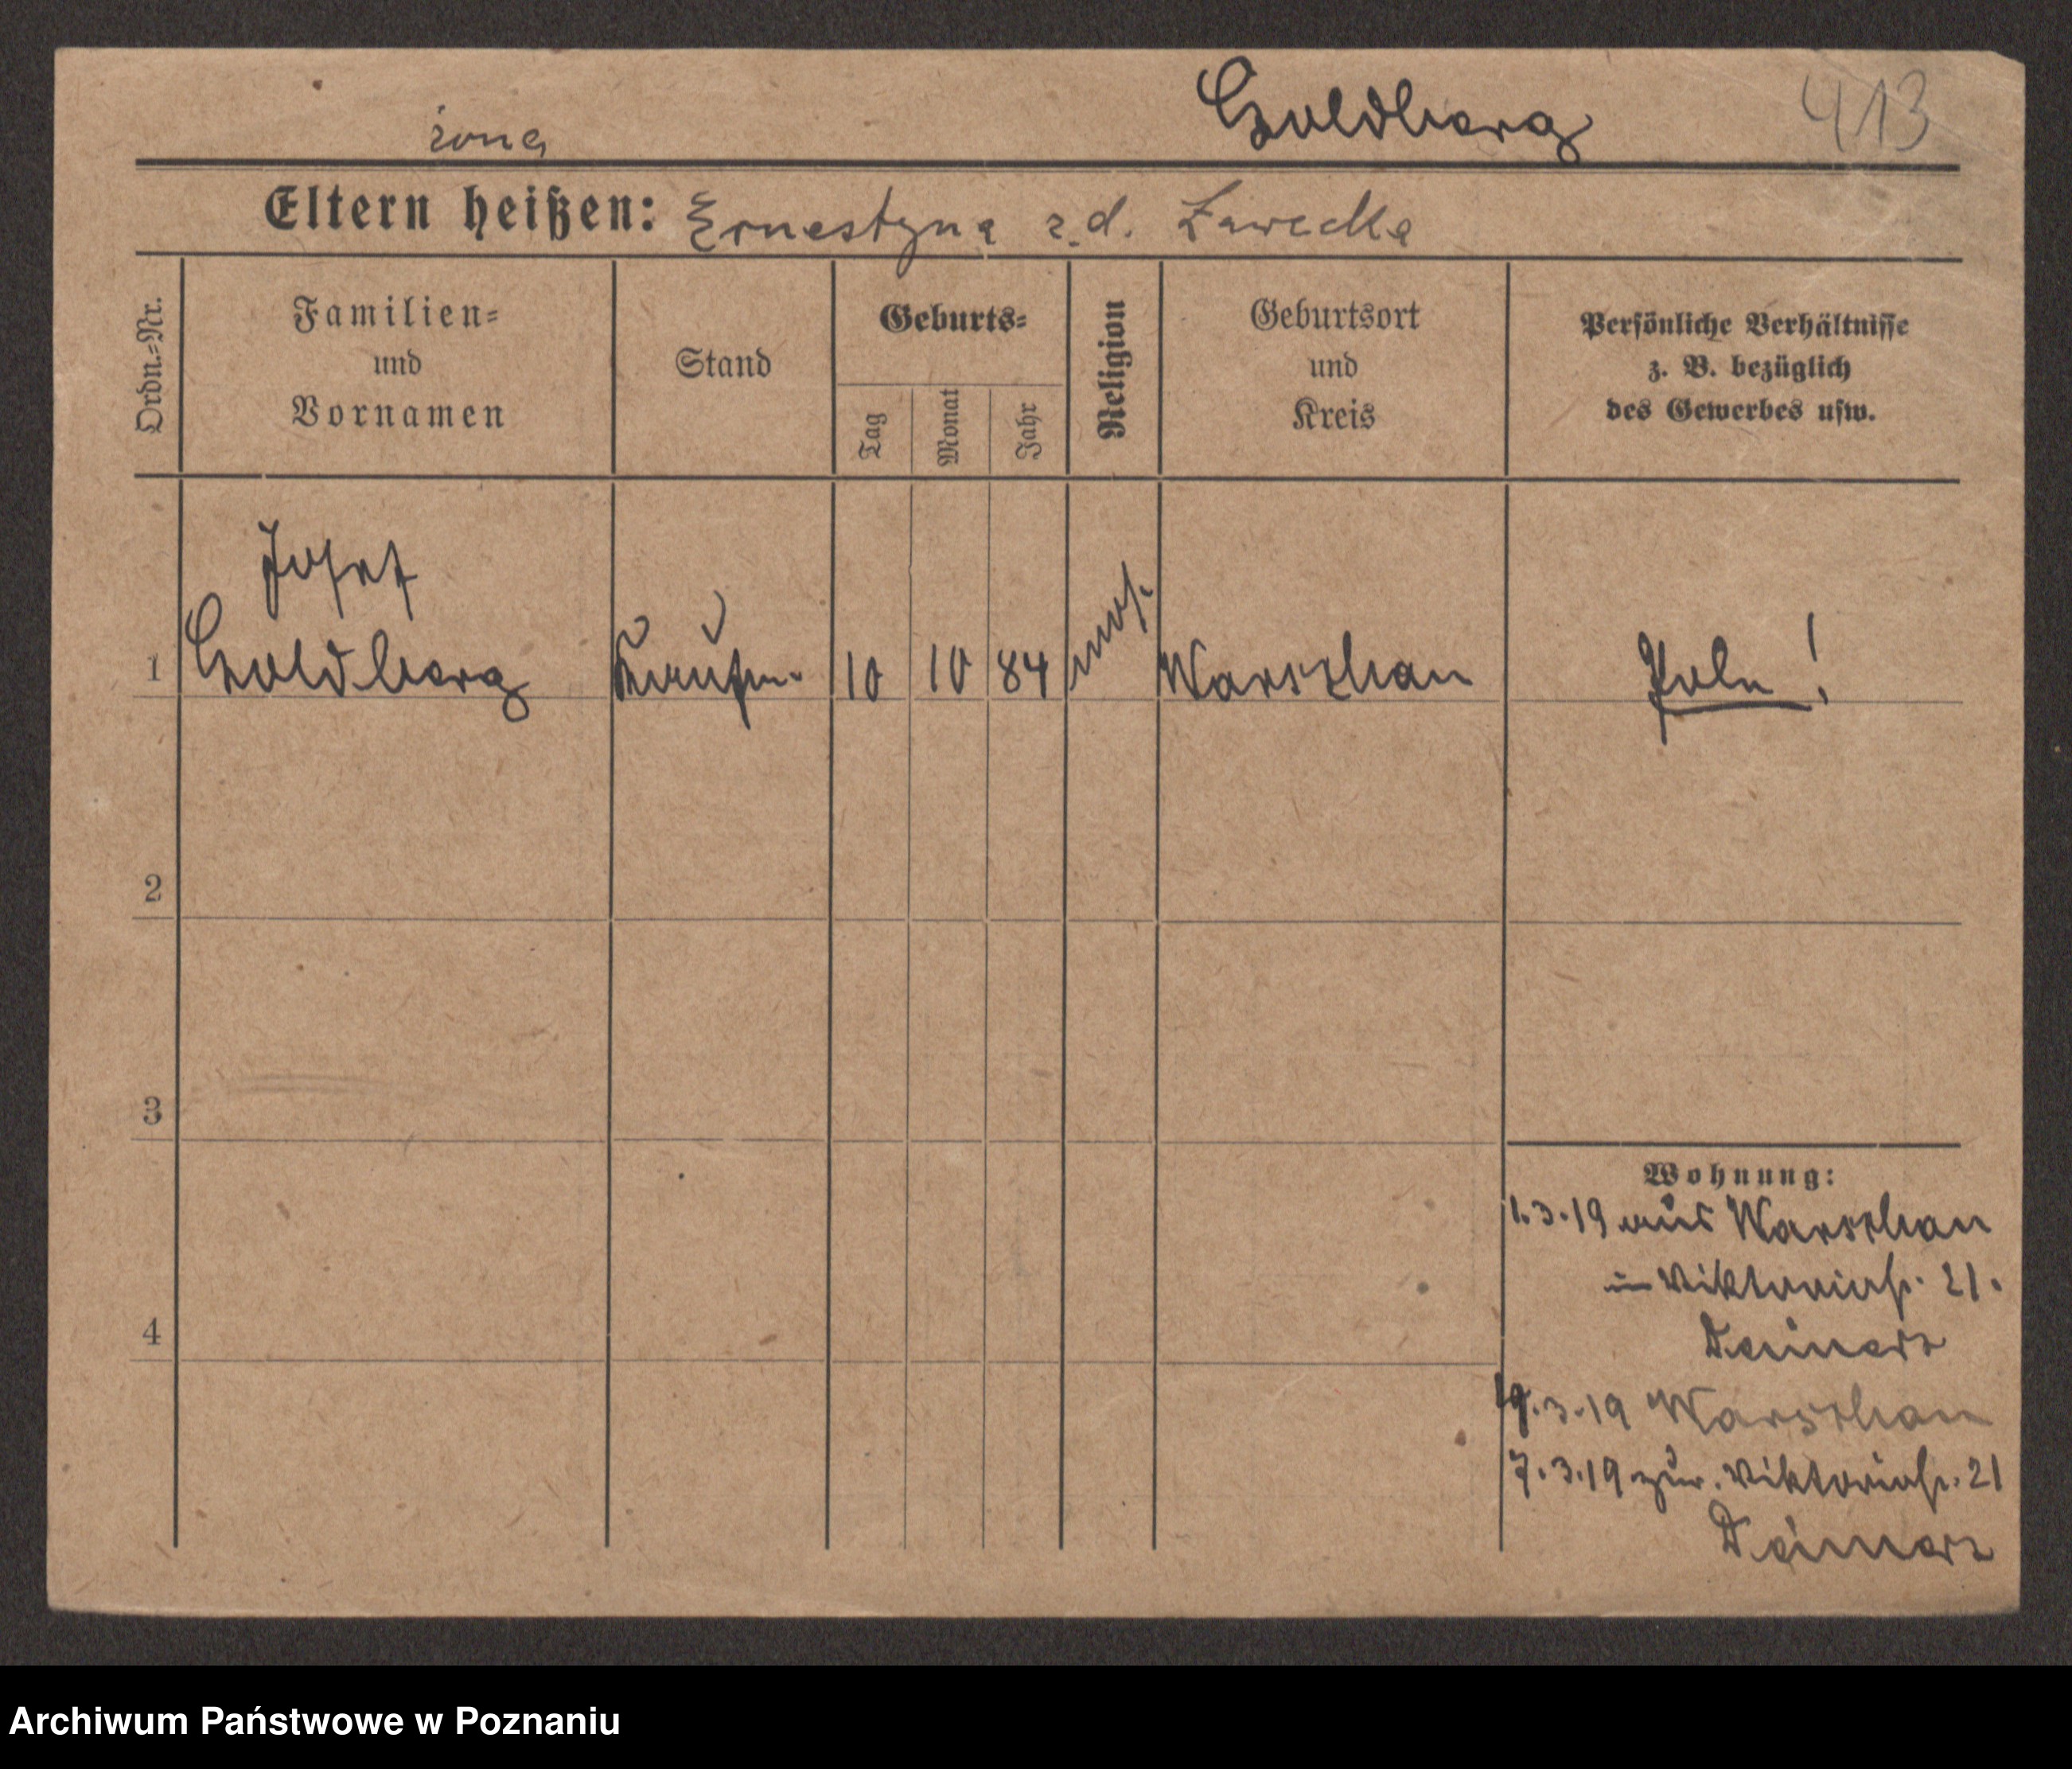 Goldberg 413
żona
Eltern heißen: Ernestyna z.d. Zawecka
Ordn.=Nr.
Familien=
und
Vornamen
Stand
Geburts=
Tag
Monat
Jahr
Religion
Geburtsort
und
Kreis
Persönliche Verhältnisse
z. B. bezüglich
des Gewerbes usw.
Josef
1 Goldberg Kaufm. 10 10 84 mos. Warschau Pole!
2
3
4
Wohnung:
1.3.19 aus Warschau
in Viktoriastr. 21.
.3.19 Warschau
7.3.19 zur. Viktoriastr. 21
Archiwum Państwowe w Poznaniu